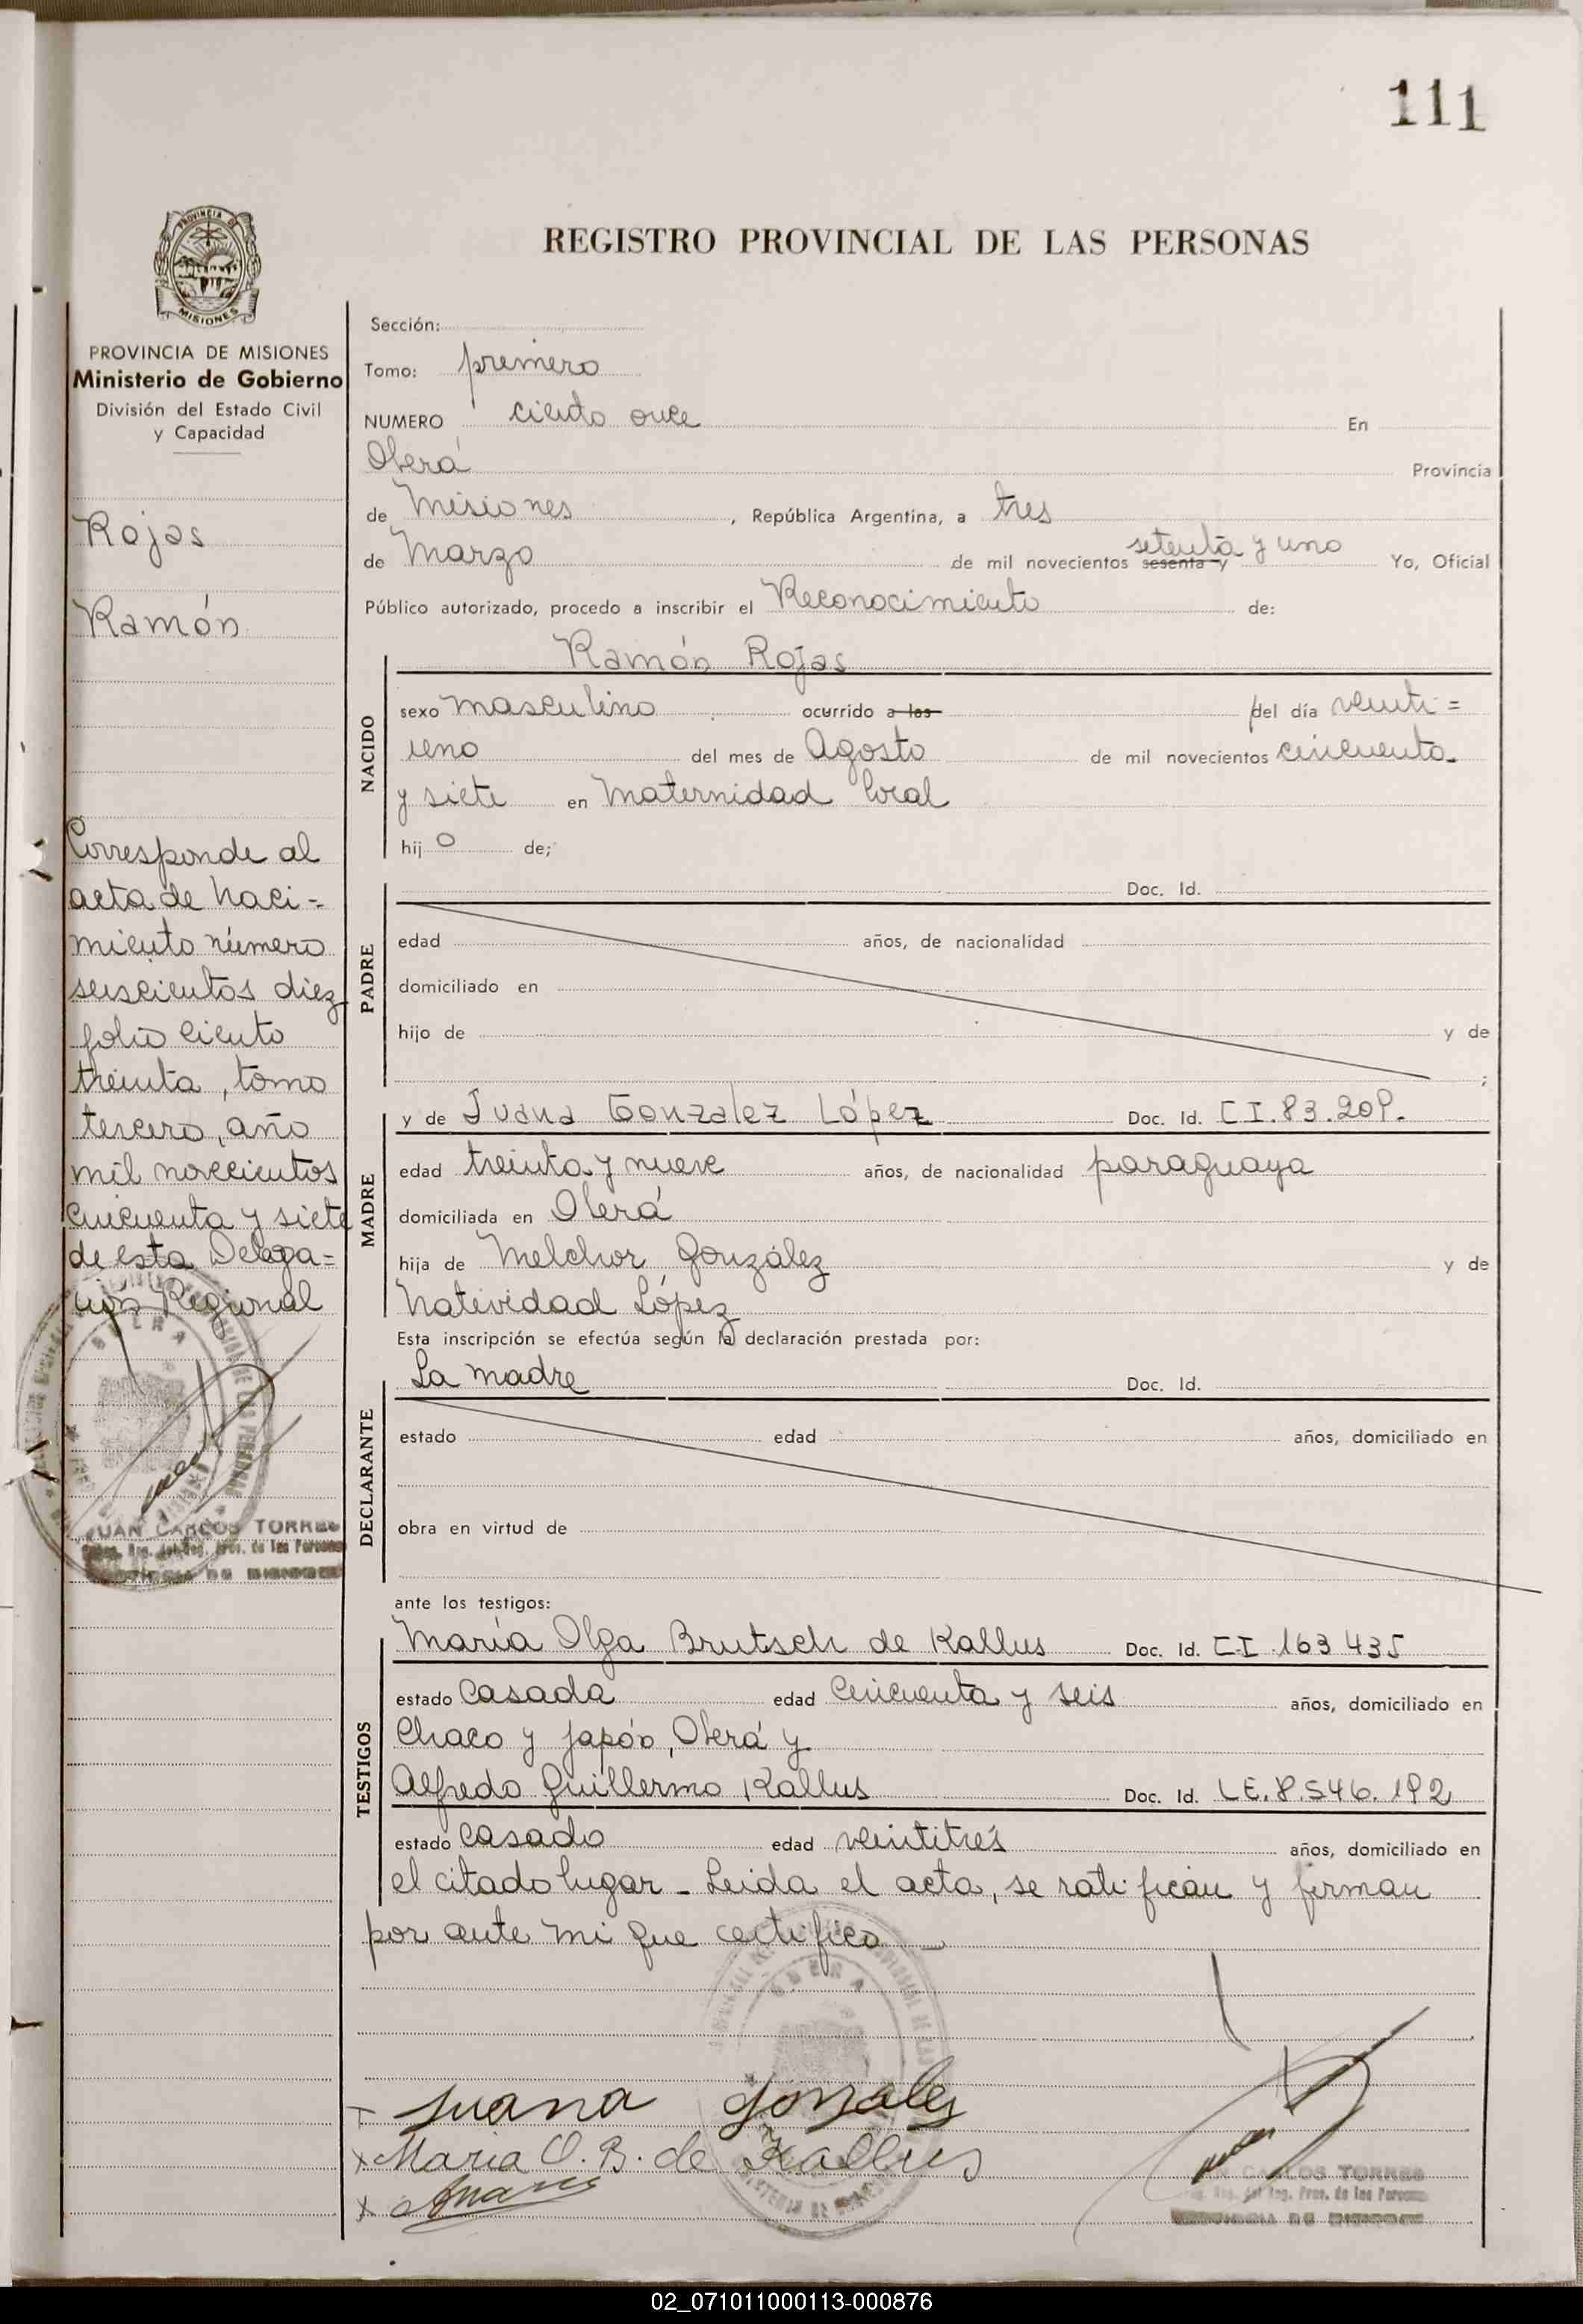 111
PROVINCIA DE
MISIONES
REGISTRO PROVINCIAL DE LAS PERSONAS
PROVINCIA DE MISIONES
Ministerio de Gobierno
División del Estado Civil
y Capacidad
Rojas
Ramón
Corresponde al
acta de naci-
miento número
seiscientos diez
folio ciento
treinta, tomo
tercero, año
mil novecientos
cincuenta y siete
de esta Delega=
ción Regional
OBERA
JUAN CARLOS TORRES
Prov. de las Personas
Sección:
Tomo: primero
NUMERO ciento once En
Oberá Provincia
de Misiones, República Argentina, a tres
de Marzo de mil novecientos sesenta y setenta y uno Yo, Oficial
Público autorizado, procedo a inscribir el Reconocimiento de:
Ramón Rojas
NACIDO
sexo masculino ocurrido a las del día veinti=
uno del mes de Agosto de mil novecientos cincuenta
y siete en Maternidad local
hij o de;
PADRE
Doc. Id.
edad años, de nacionalidad
domiciliado en
hijo de y de
;
MADRE
y de Juana Gonzalez López Doc. Id. CI.83.209.
edad treinta y nueve años, de nacionalidad paraguaya
domiciliada en Oberá
hija de Melchor González y de
Natividad López
Esta inscripción se efectúa según la declaración prestada por:
DECLARANTE
La madre Doc. Id.
estado edad años, domiciliado en
obra en virtud de
ante los testigos:
TESTIGOS
María Olga Brutsch de Kallus Doc. Id. C.I 163 435
estado casada edad cincuenta y seis años, domiciliado en
Chaco y Japón, Oberá y
Alfredo Guillermo Kallus Doc. Id. LE.8.546.192
estado casado edad veintitrés años, domiciliado en
el citado lugar - Leida el acta, se ratifican y firman
por ante mi que certifico
OBERA
Juana Gonzales
x Maria O. B. de Kallus
x
CARLOS TORRES
Prov. de las Personas
02_071011000113-000876